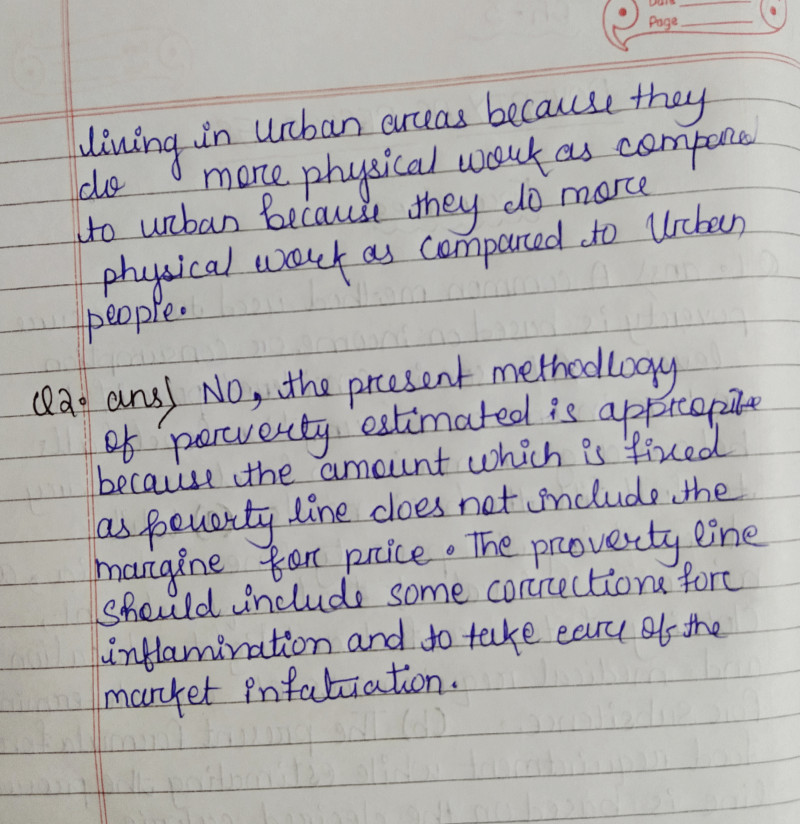 Date
Page
living in urban areas because they
do more physical work as compared
to urban because they do more
physical work as compared to Urban
people.
Q2. ans) NO, the present methodlogy
of porverty estimated is appropite
because the amount which is fixed
as poverty line does not include the
margine for price. The proverty line
should include some corrections for
inflamination and to take care of the
market infatuation.